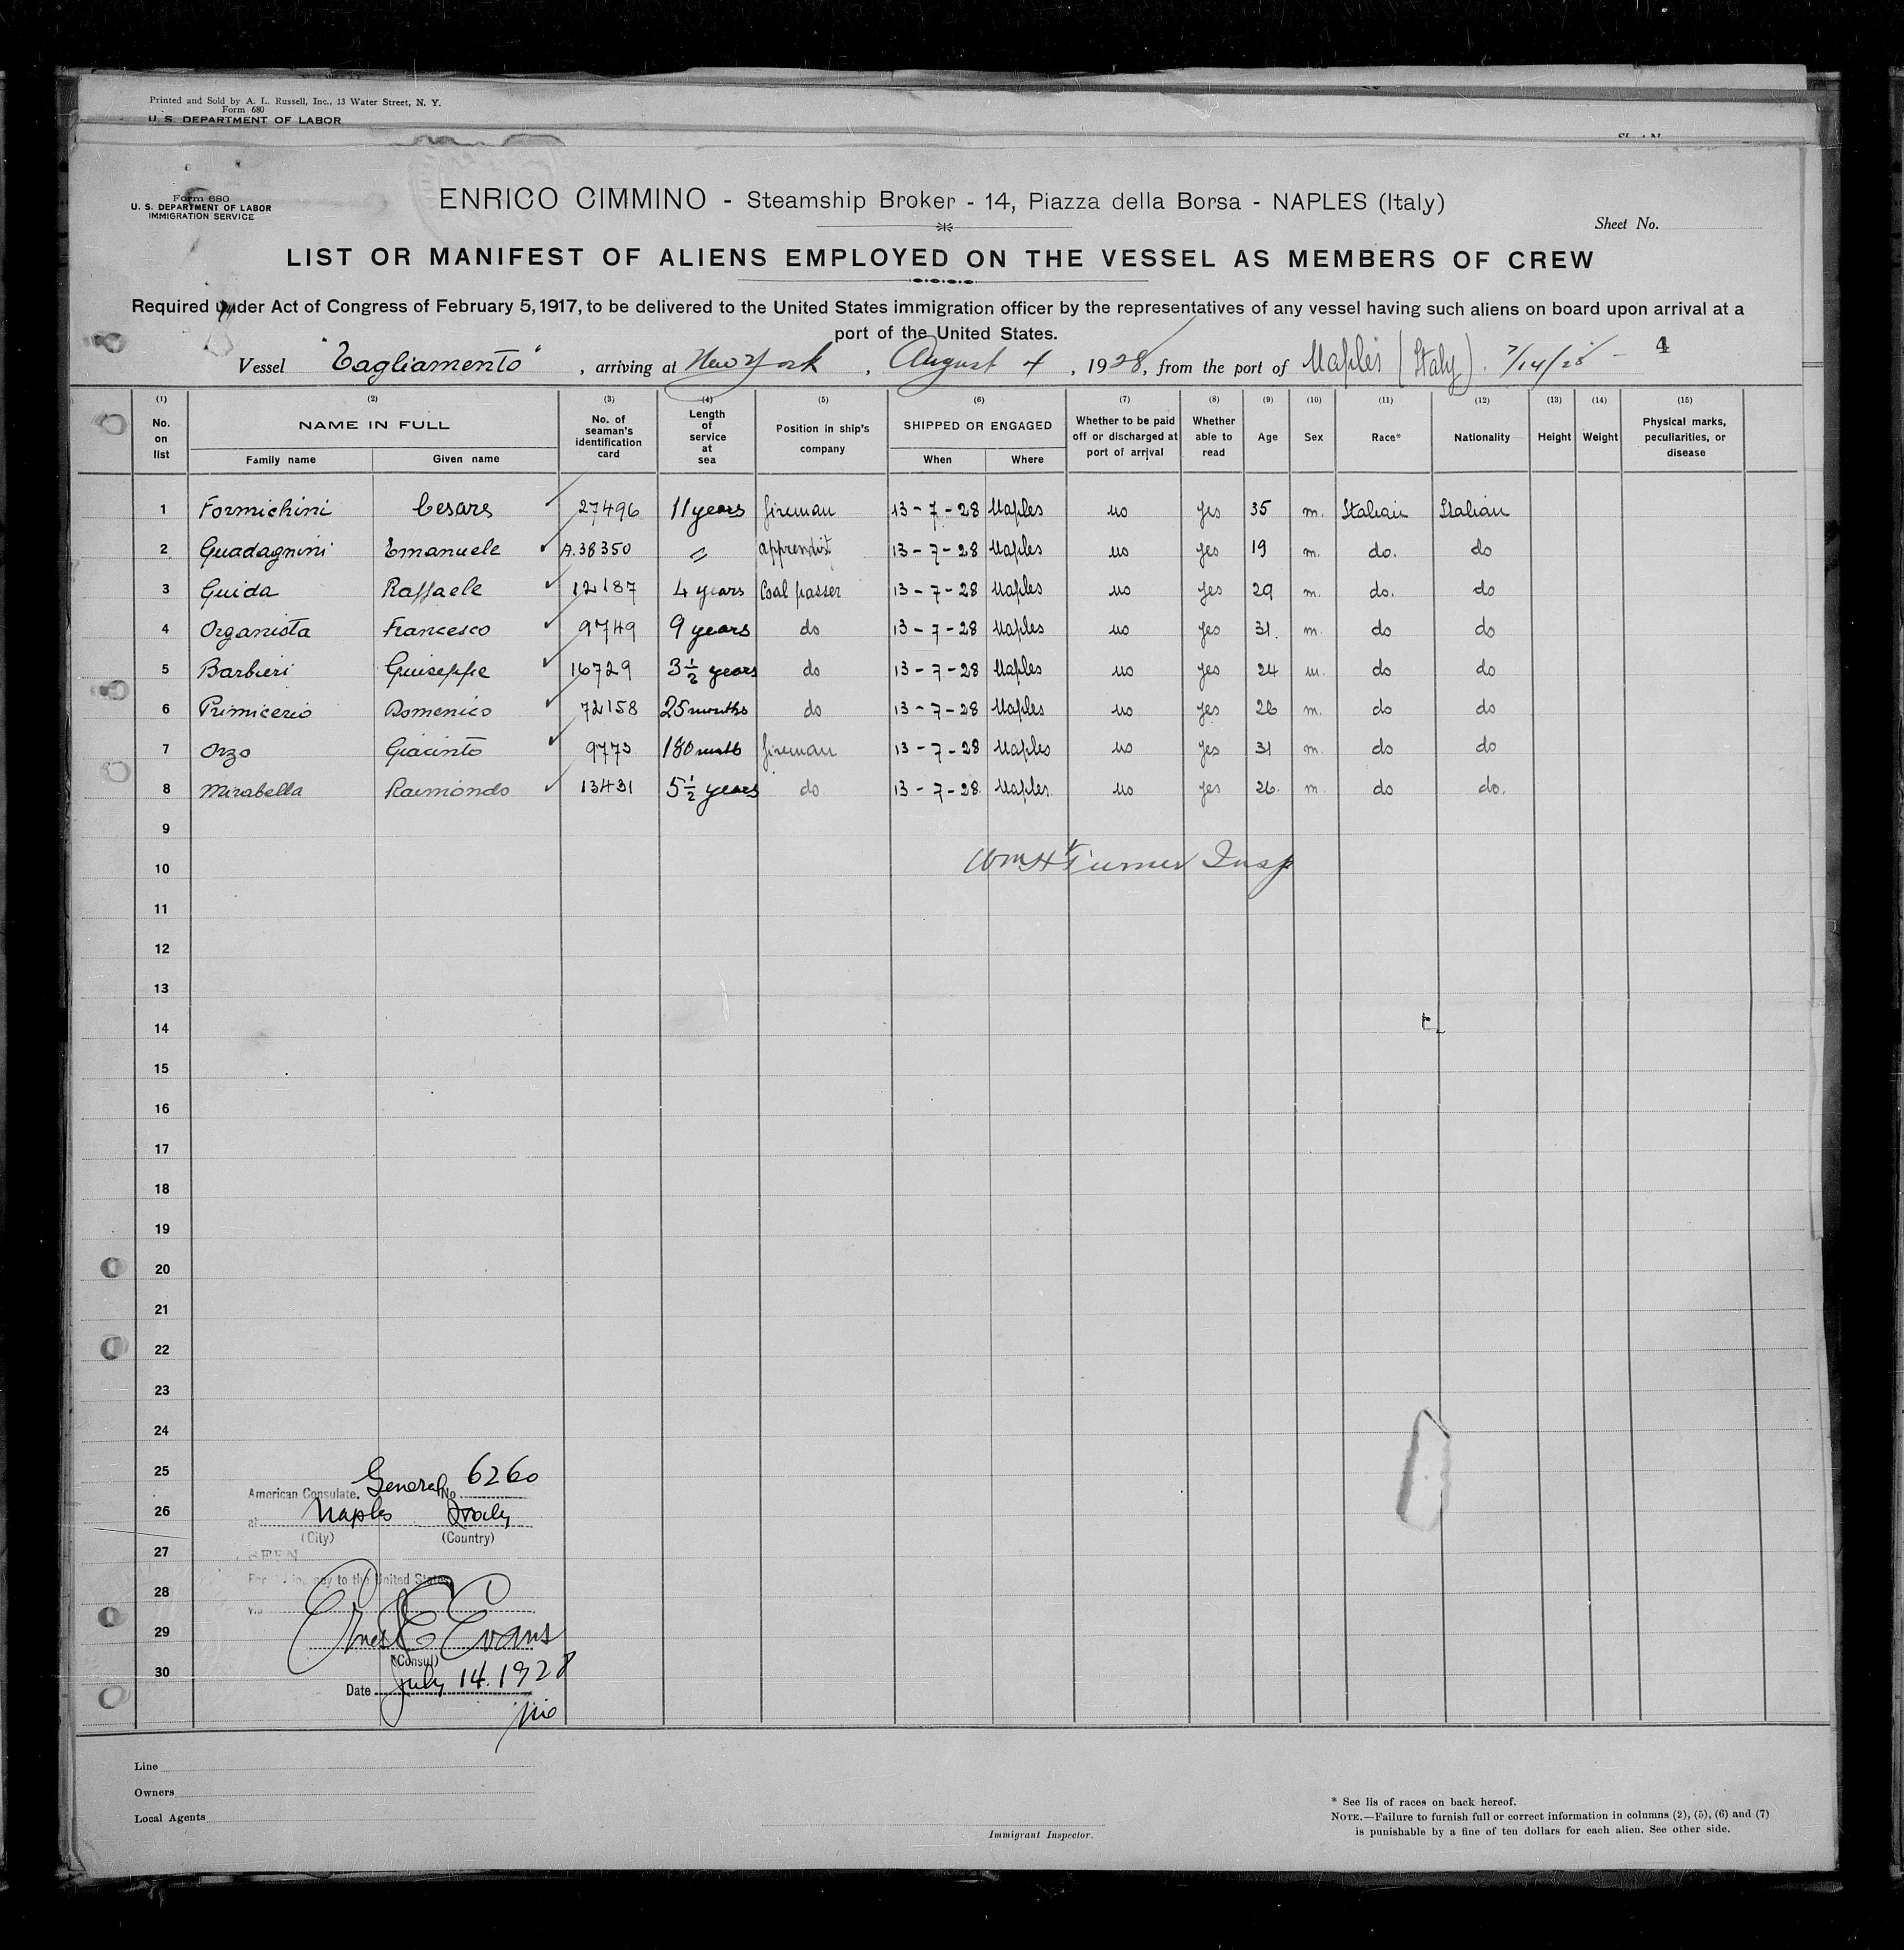 Printed and Sold by A. L. Russell, Inc., 13 Water Street, N. Y.
Form 680
U. S. DEPARTMENT OF LABOR
Form 680
U. S. DEPARTMENT OF LABOR
IMMIGRATION SERVICE
ENRICO CIMMINO - Steamship Broker - 14, Piazza della Borsa - NAPLES (Italy)
Sheet No.
LIST OR MANIFEST OF ALIENS EMPLOYED ON THE VESSEL AS MEMBERS OF CREW
Required under Act of Congress of February 5, 1917, to be delivered to the United States immigration officer by the representatives of any vessel having such aliens on board upon arrival at a
port of the United States.
Vessel "Tagliamento", arriving at New York, August 4, 1928, from the port of Naples (Italy). 7/14/28 - 4
(1) (2) (3) (4) (5) (6) (7) (8) (9) (10) (11) (12) (13) (14) (15)
No. on list NAME IN FULL No. of seaman's identification card Length of service at sea Position in ship's company SHIPPED OR ENGAGED Whether to be paid off or discharged at port of arrival Whether able to read Age Sex Race* Nationality Height Weight Physical marks, peculiarities, or disease
Family name Given name When Where
1 Formichini Cesare 27496 11 years fireman 13-7-28 Naples no yes 35 m. Italian Italian
2 Guadagnini Emanuele A.38350 = apprendist 13-7-28 Naples no yes 19 m. do. do
3 Guida Raffaele 12187 4 years Coal passer 13-7-28 Naples no yes 29 m. do. do
4 Organista Francesco 9749 9 years do 13-7-28 Naples no yes 31. m. do do
5 Barbieri Guiseppe 16729 3 1/2 years do 13-7-28 Naples no yes 24 m. do do
6 Primicerio Domenico 72158 25 months do 13-7-28 Naples no yes 26 m. do do
7 Orzo Giacinto 9773 180 fireman 13-7-28 Naples no yes 31 m do do
8 Mirabella Raimondo 13431 5 1/2 years do 13-7-28 Naples. no yes 26. m do do.
9
Wm H Turner Insp
10
11
12
13
14
15
16
17
18
19
20
21
22
23
24
25
American Consulate General No 6260
26
at Naples Italy
(City) (Country)
27
SEEN
For the journey to the United States
28
via
29
Evans
(Consul)
30
Date July 14. 1928
Line
Owners
Local Agents
Immigrant Inspector.
* See lis of races on back hereof.
NOTE.—Failure to furnish full or correct information in columns (2), (5), (6) and (7)
is punishable by a fine of ten dollars for each alien. See other side.